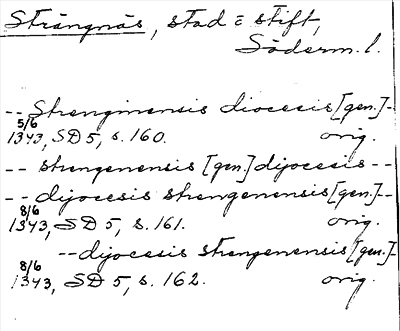 Strängnäs, stad & stift,
Söderm. l.
-- Strenginensis diocesis [gen.]--
5/6
1343, SD 5, s. 160. orig.
-- strengenensis [gen.] dijocesis --
-- dijocesis strengenensis [gen.]--
8/6
1343, SD 5, s. 161. orig.
-- dijocesis strengenensis [gen.]-
8/6
1343, SD 5, s. 162. orig.